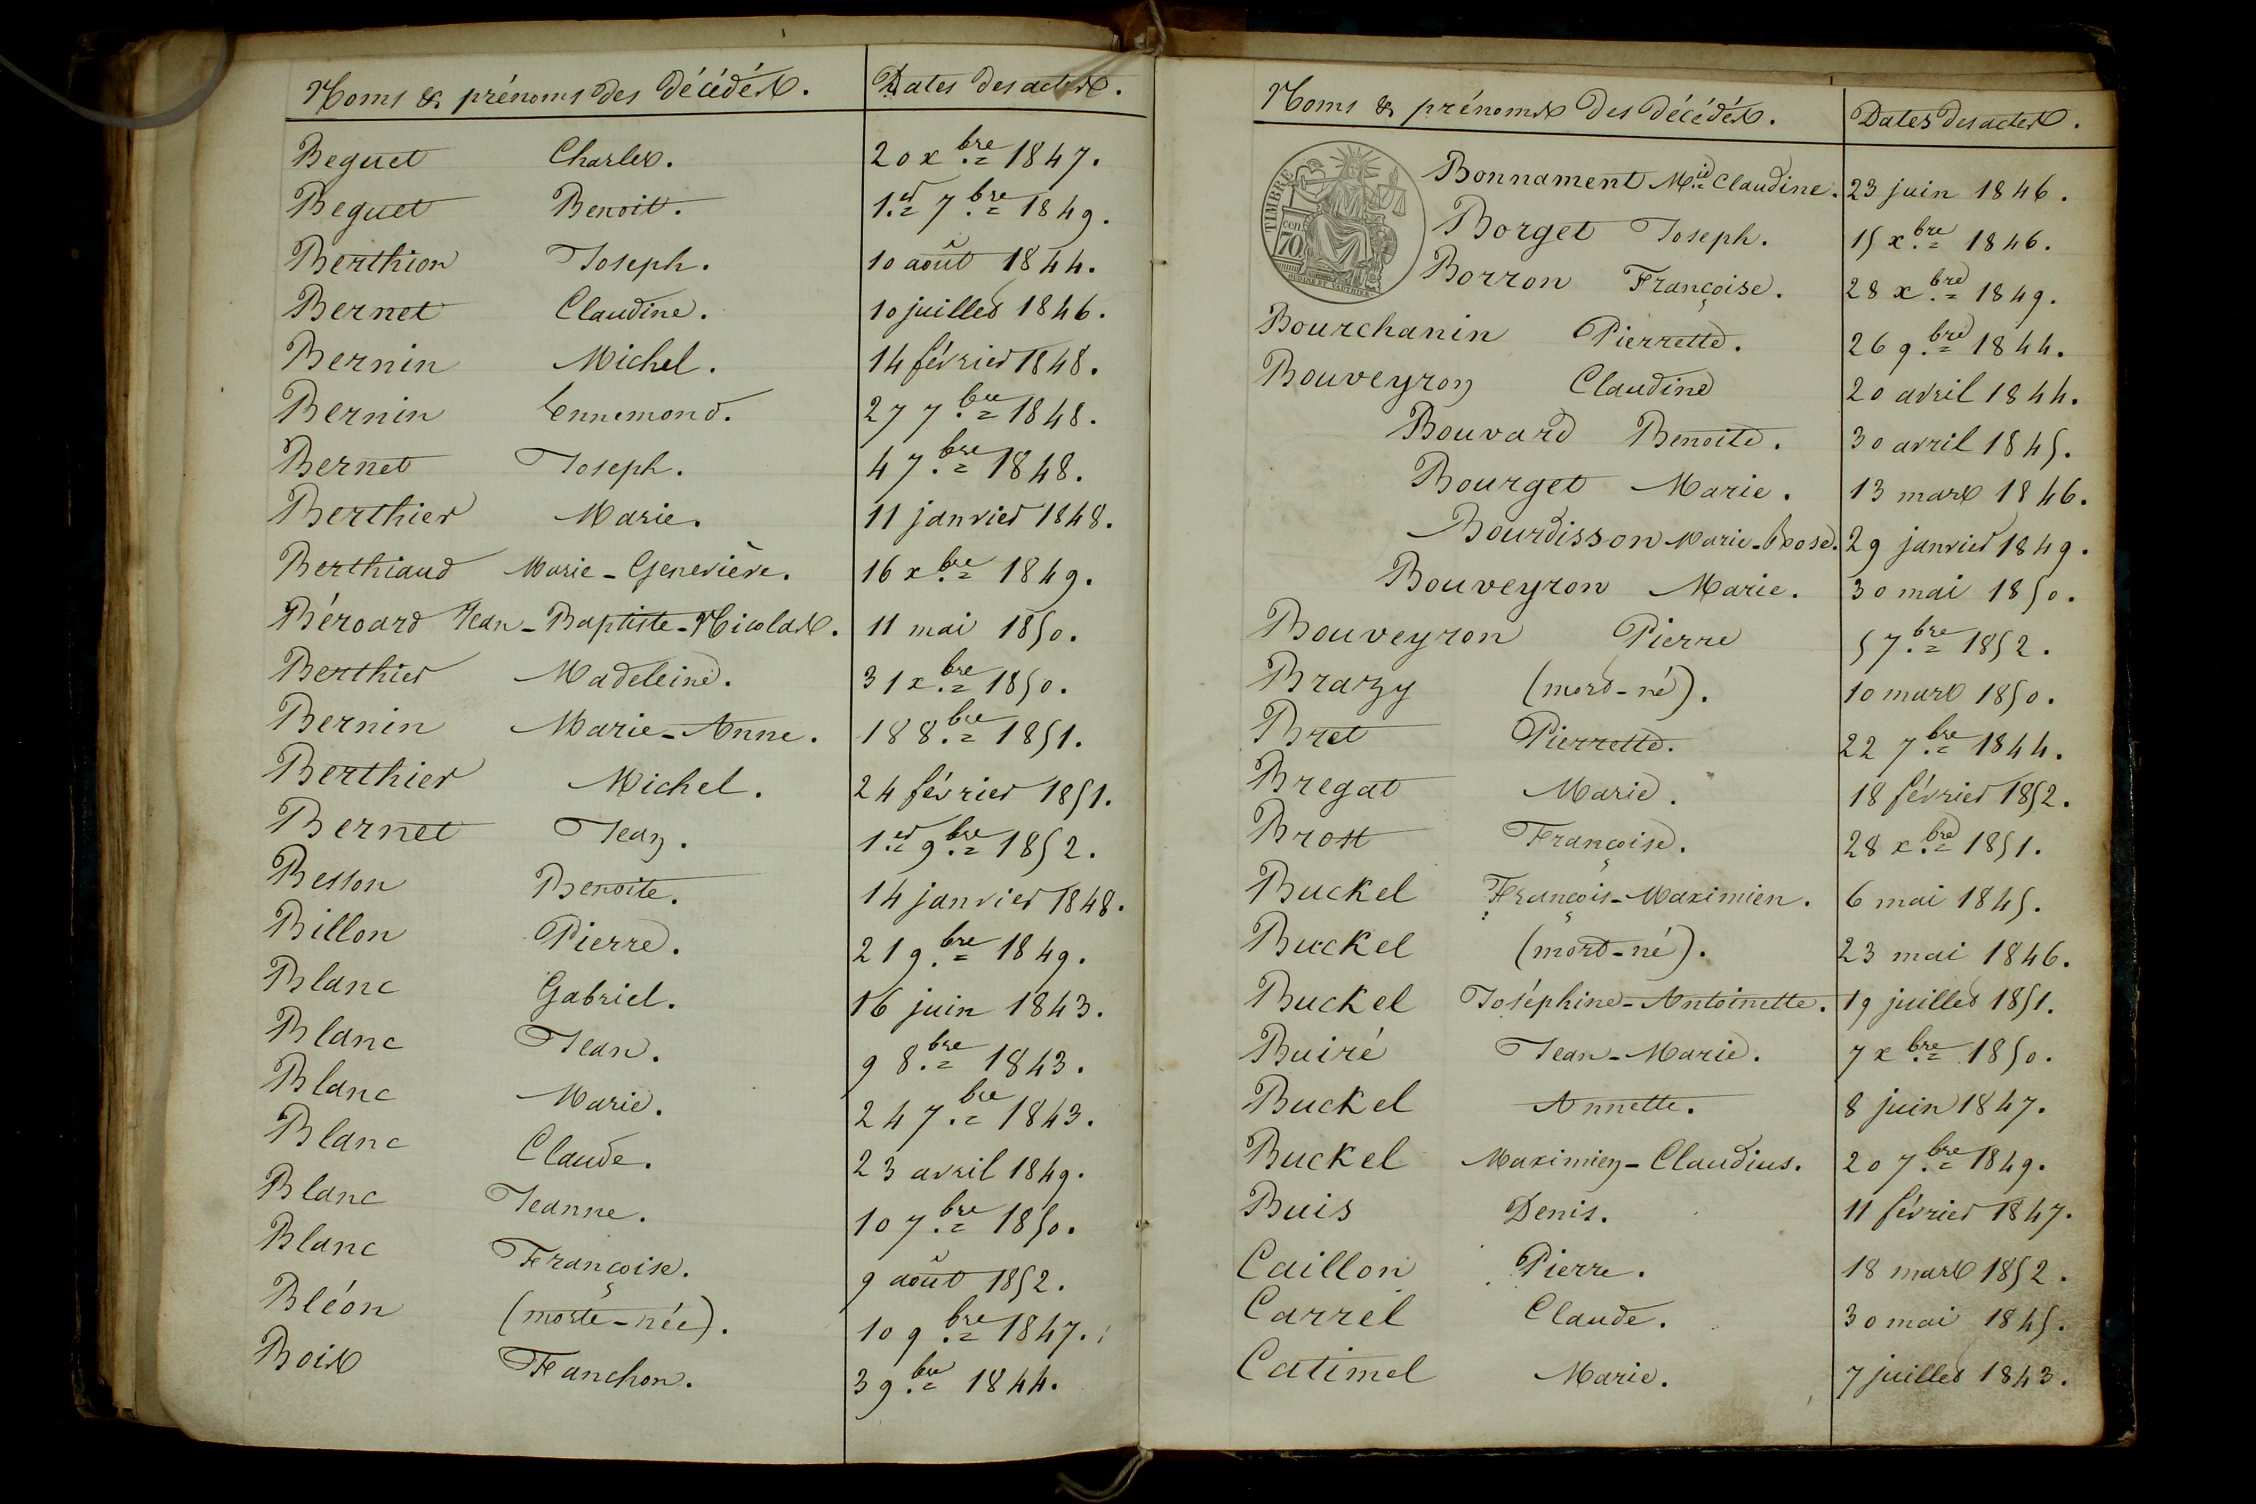 Noms & prénoms des décédés. Dates des actes.
Beguet Charles. 20 xbre 1847.
Beguet Benoit. 1er 7bre 1849.
Berthion Joseph. 10 août 1844.
Bernet Claudine. 10 juillet 1846.
Bernin Michel. 14 février 1848.
Bernin Ennemond. 27 7bre 1848.
Bernet Joseph. 4 7bre 1848.
Berthier Marie. 11 janvier 1848.
Berthiaud Marie-Geneviève. 16 xbre 1849.
Béroard Jean-Baptiste-Nicolas. 11 mai 1850.
Berthier Madeleine. 31 xbre 1850.
Bernin Marie-Anne. 18 8bre 1851.
Berthier Michel. 24 février 1851.
Bernet Jean. 1er 9bre 1852.
Besson Benoite. 14 janvier 1848.
Billon Pierre. 21 9bre 1849.
Blanc Gabriel. 16 juin 1843.
Blanc Jean. 9 8bre 1843.
Blanc Marie. 24 7bre 1843.
Blanc Claude. 23 avril 1849.
Blanc Jeanne. 10 7bre 1850.
Blanc Françoise. 9 août 1852.
Bléon (morte-née). 10 9bre 1847.
Bois Fanchon. 3 9bre 1844.
Noms & prénoms des décédés. Dates des actes.
TIMBRE
70 cent
Bonnament Mie Claudine. 23 juin 1846.
Borget Joseph. 15 xbre 1846.
Borron Françoise. 28 xbre 1849.
Bourchanin Pierrette. 26 9bre 1844.
Bouveyron Claudine 20 avril 1844.
Bouvard Benoite. 30 avril 1845.
Bourget Marie. 13 mars 1846.
Bourdisson Marie- 29 janvier 1849.
Bouveyron Marie. 30 mai 1850.
Bouveyron Pierre 5 7bre 1852.
Brazy (mort-né). 10 mars 1850.
Bret Pierrette. 22 7bre 1844.
Bregat Marie. 18 février 1852.
Brost Françoise. 28 xbre 1851.
Buckel François-Maximien. 6 mai 1845.
Buckel (mort-né). 23 mai 1846.
Buckel Joséphine-Antoinette. 19 juillet 1851.
Buiré Jean-Marie. 7 xbre 1850.
Buckel Annette. 8 juin 1847.
Buckel Maximien-Claudius. 20 7bre 1849.
Buis Denis. 11 février 1847.
Caillon Pierre. 18 mars 1852.
Carrel Claude. 30 mai 1845.
Catimel Marie. 7 juillet 1843.